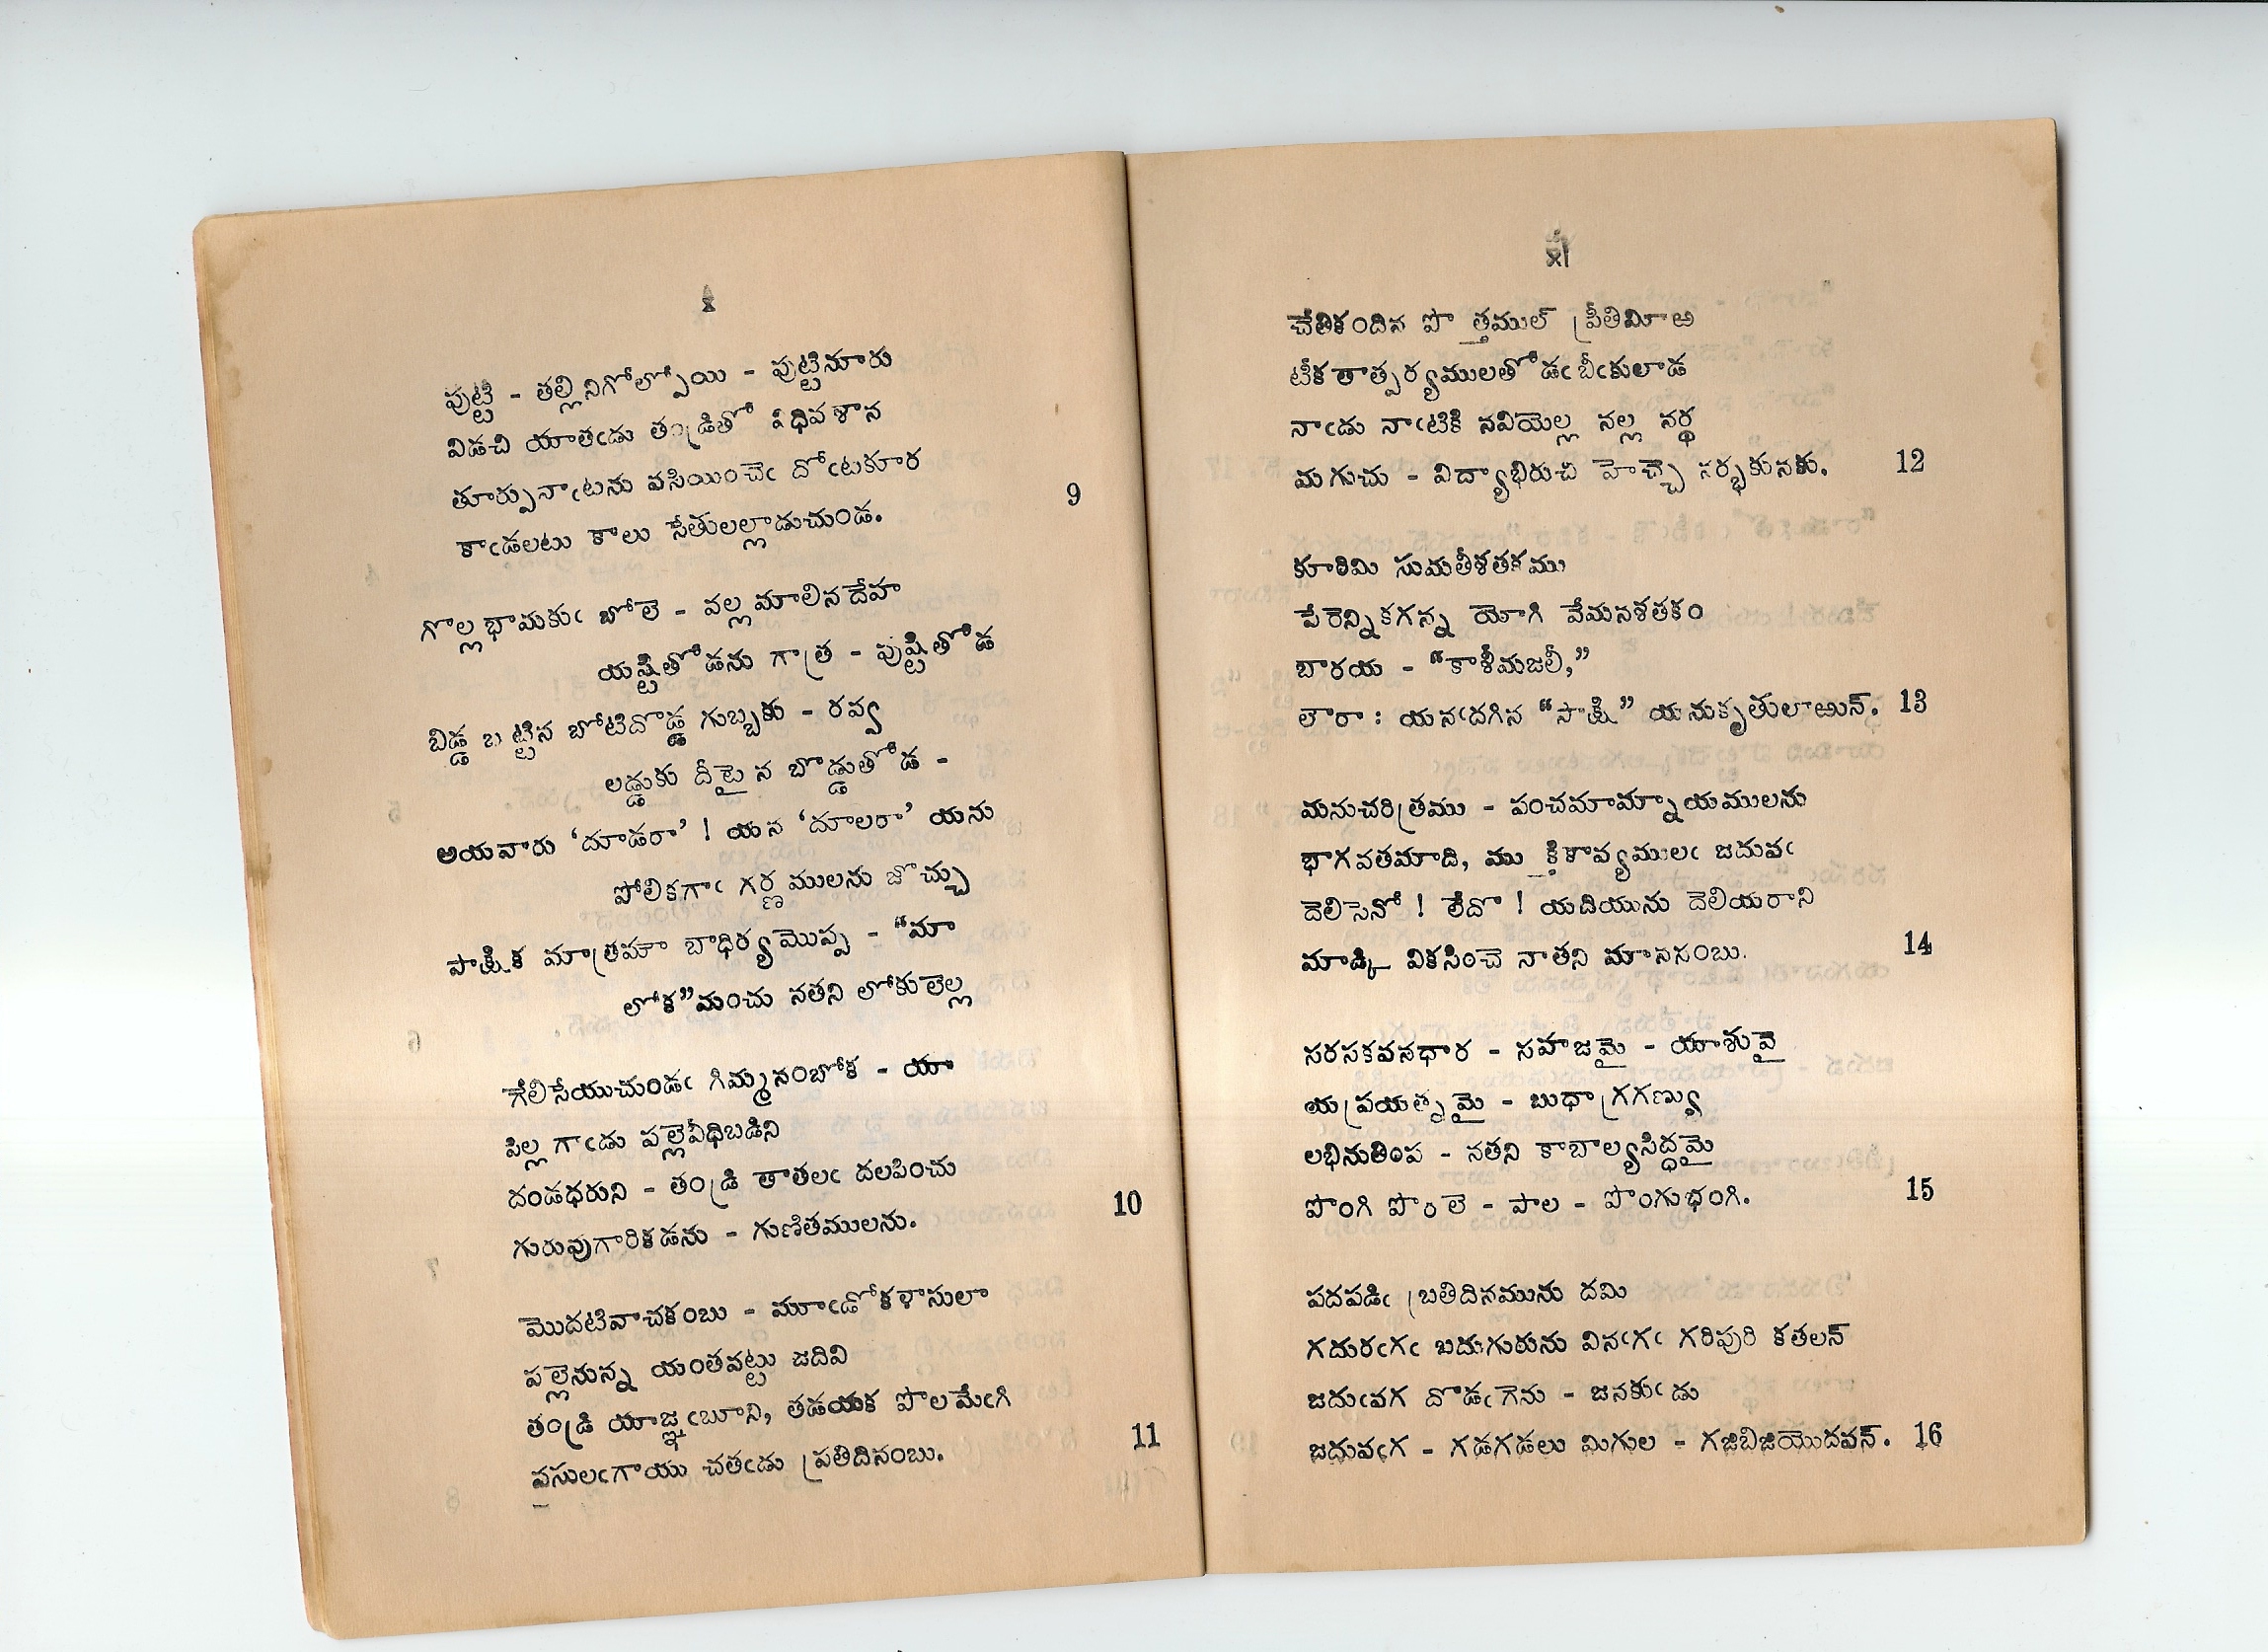 x
పుట్టి - తల్లినిగోల్పోయి - పుట్టినూరు
విడచి యాతఁడు తండ్రితో విధివశాన
తూర్పునాఁటను వసియించెఁ దోఁటకూర
కాఁడలటు కాలు సేతులల్లాడుచుండ. 9
గొల్లభామకుఁ బోలె - వల్లమాలినదేహ
యష్టితోడను గాత్ర - పుష్టితోడ
బిడ్డ బట్టిన బోటిదొడ్డ గుబ్బకు - రవ్వ
లడ్డుకు దీటైన బొడ్డుతోడ -
అయవారు ‘దూడరా’ ! యన ‘దూలరా’ యను
పోలికగాఁ గర్ణములను జొచ్చు
పాక్షిక మాత్రపూ బాధిర్యమొప్ప - “మా
లోక”మంచు నతని లోకులెల్ల
గేలిసేయుచుండఁ గిమ్మనంబోక - యా
పిల్లగాఁడు పల్లెవీధిబడిని
దండధరుని - తండ్రి తాతలఁ దలపించు
గురువుగారికడను - గుణితములను. 10
మొదటివాచకంబు - మూఁడోకళాసులా
పల్లెనున్న యంతవట్టు జదివి
తండ్రి యాజ్ఞఁబూని, తడయక పొలమేఁగి
పసులఁగాయు చతఁడు ప్రతిదినంబు. 11
xi
చేతికందిన పొత్తముల్ ప్రీతిమీఱ
టీకతాత్పర్యములతోడఁ బీఁకులాడ
నాఁడు నాఁటికి నవియెల్ల నల్ల నర్థ
మగుచు - విద్యాభిరుచి హెచ్చె నర్భకునకు. 12
కూరిమి సుమతీశతకము
పేరెన్నికగన్న యోగి వేమనశతకం
బారయ - “కాశీమజలీ,”
లౌరా : యనఁదగిన “సాక్షి” యనుకృతులాఱున్. 13
మనుచరిత్రము - పంచమామ్నాయములను
భాగవతమాది, ముక్తికావ్యములఁ జదువఁ
దెలిసెనో ! లేదొ ! యదియును దెలియరాని
మాడ్కి వికసించె నాతని మానసంబు. 14
సరసకవనధార - సహజమై - యాశువై
యప్రయత్నమై - బుధాగ్రగణ్యు
లభినుతింప - నతని కాబాల్యసిద్ధమై
పొంగి పొరలె - పాల - పొంగుభంగి. 15
పదపడిఁ బ్రతిదినమును దమి
గదురఁగఁ బదుగురును వినఁగఁ గరిపురి కతలన్
జదుఁవగ దొడఁగెను - జనకుఁడు
జదువఁగ - గడగడలు మిగుల - గజిబిజియొదవన్. 16